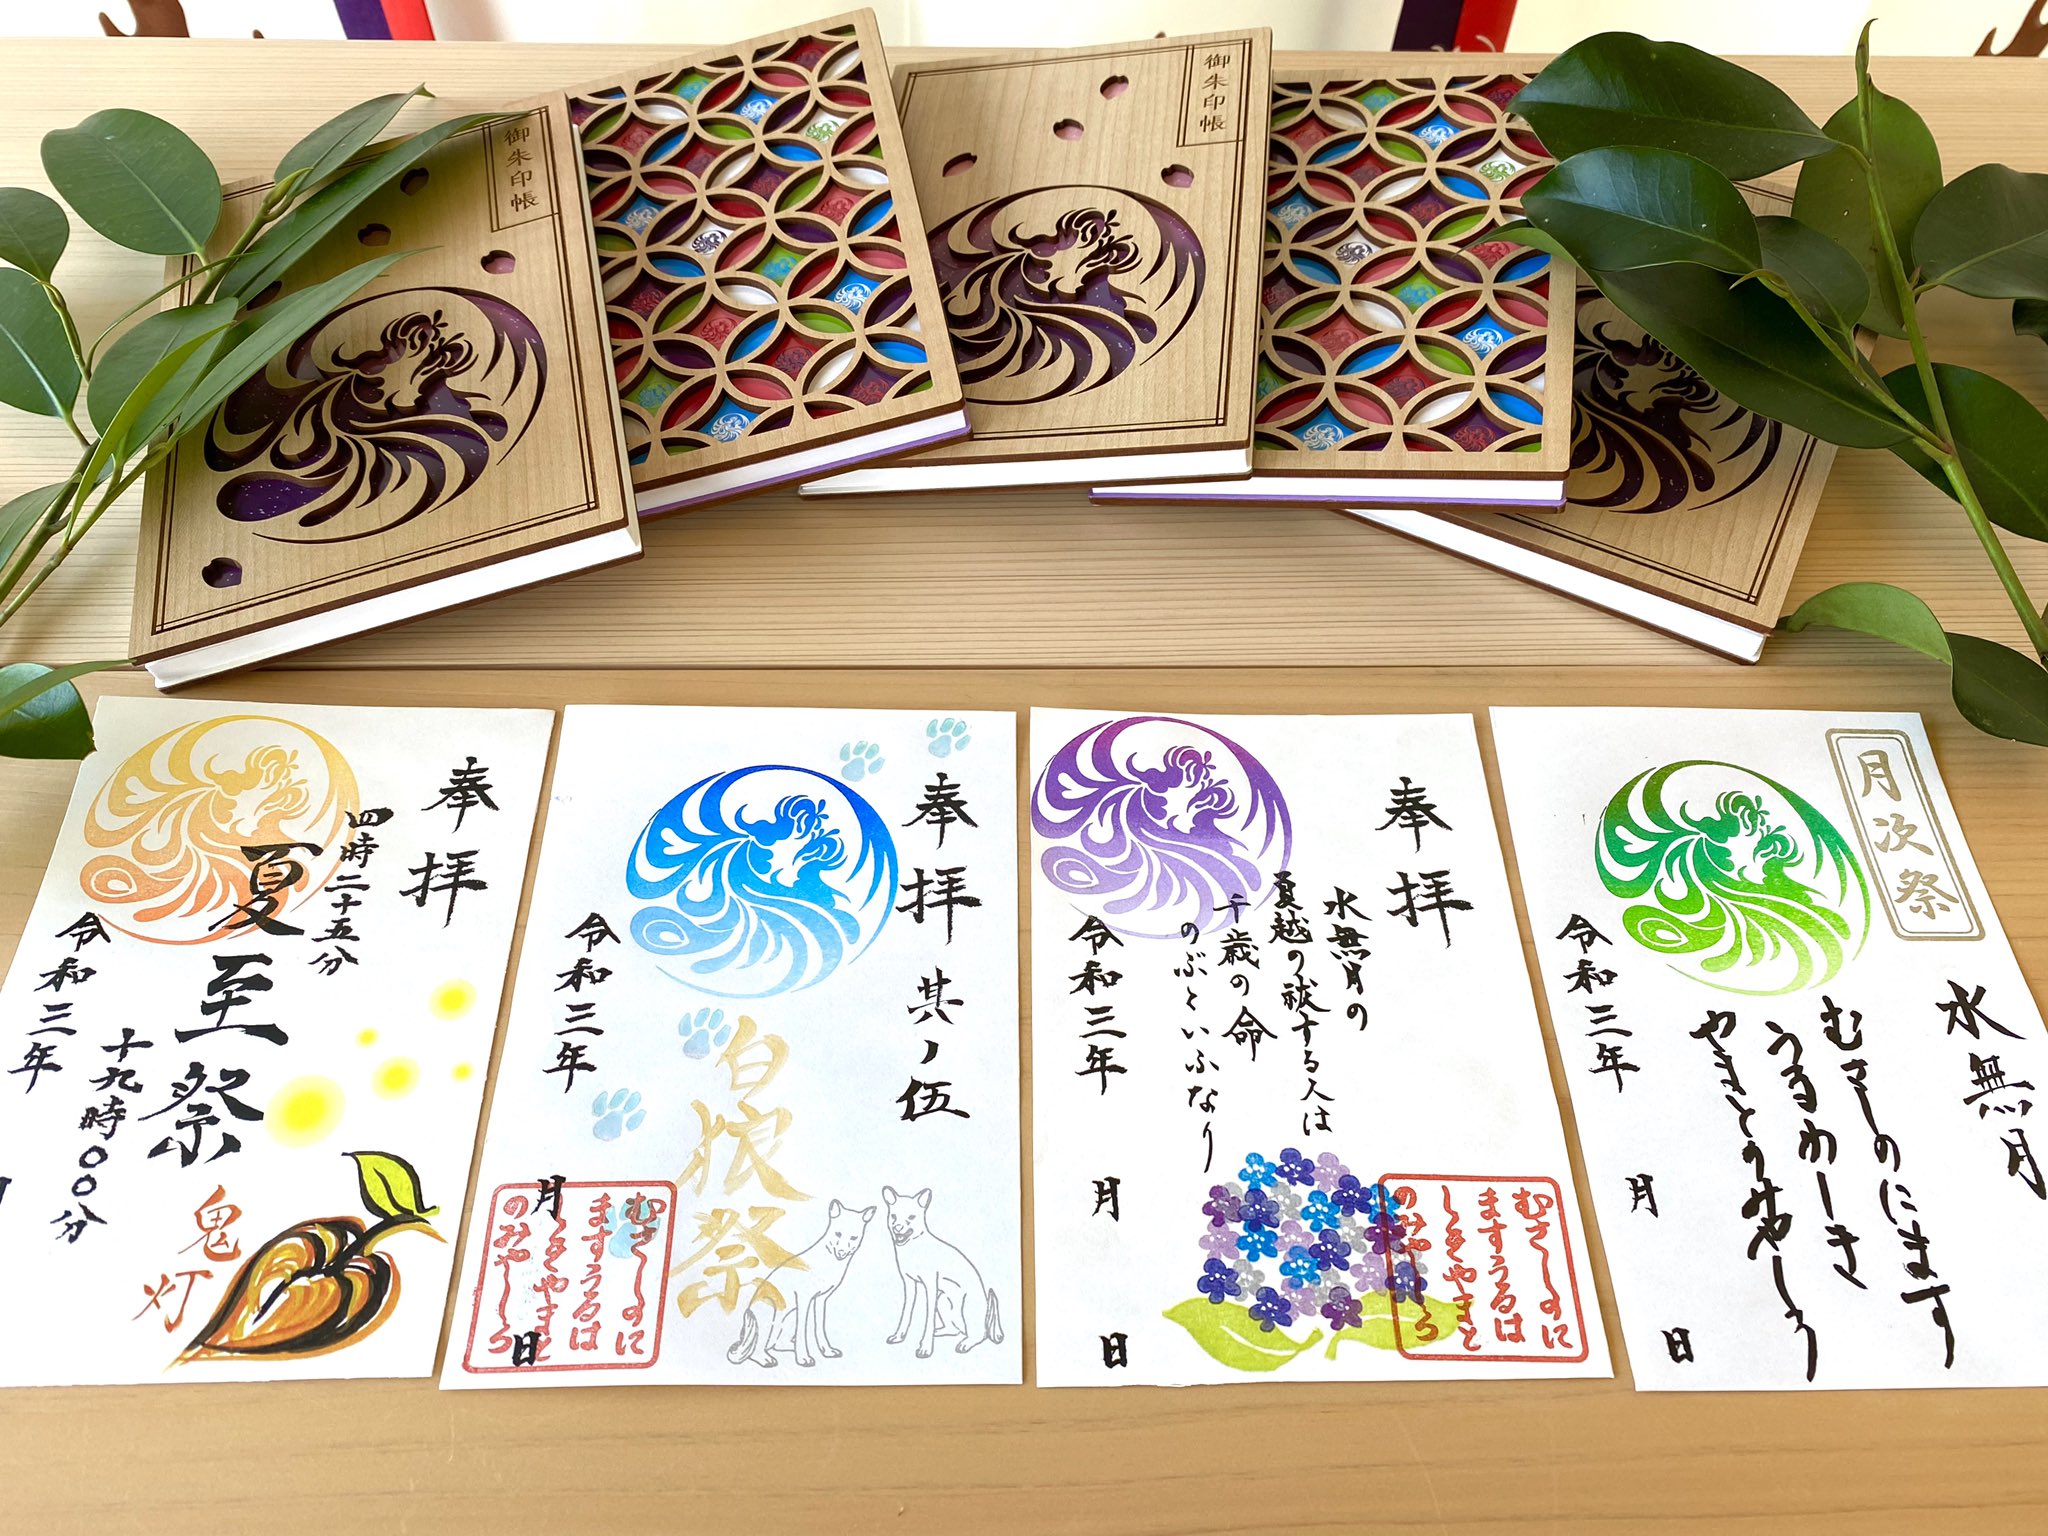 御朱印帳
御朱印帳
奉拝
四時二十五分
夏至祭
十九時〇〇分
令和三年
月
鬼灯
奉拝
其ノ伍
白狼祭
令和三年
月
日
むさしのに
ますうるは
しきやまと
のみやしろ
奉拝
水無月の
夏越の祓する人は
千歳の命
のぶといふなり
令和三年
月
日
むさしのに
ますうるは
しきやまと
のみやしろ
月次祭
水無月
むさしのにます
うるわしき
やまとのみやしろ
令和三年
月
日